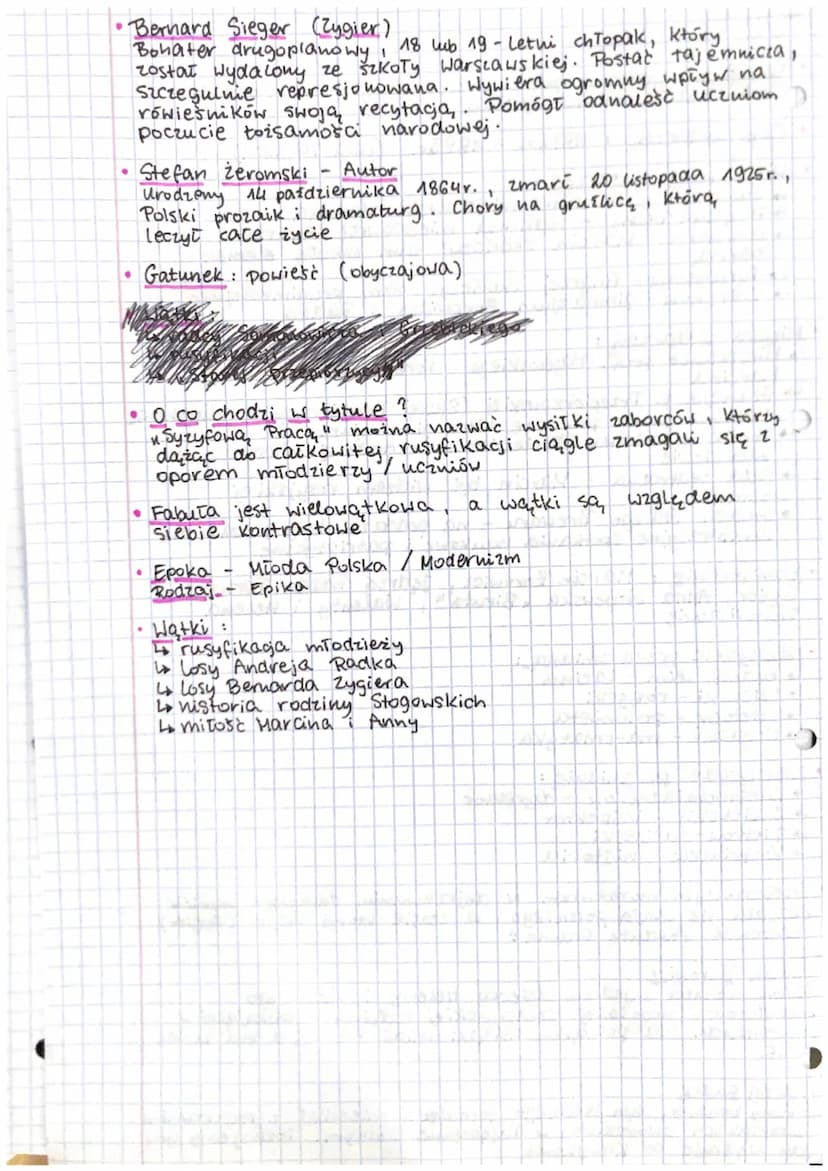 • Bernard Sieger (Zygier)
Bohater drugoplanowy, 18 lub 19-letni chłopak, który
został wydalony ze szkoły warszawskiej. Postać tajemnicza,
szczegulnie represjonowana. Wywiera ogromny wpływ na
rówieśników swoją recytacją. Pomógł odnaleść uczniom
poczucie toisamości narodowej.
• Stefan żeromski - Autor
Urodzony 14 października 1864r., zmarł 20 listopada 1925r.,
Polski prozaik i dramaturg. Chory na gruźlicę, którą
leczył całe życie
• Gatunek: powieść (obyczajowa)
Wątki:
• O co chodzi w tytule?
"Syzyfową Pracą" można nazwać wysiłki zaborców, którzy
dążąc do całkowitej rusyfikacji ciągle zmagali się z
oporem młodzierzy / uczniów
• Fabuła jest wielowątkowa, a wątki są względem
siebie kontrastowe
• Epoka - Młoda Polska / Modernizm
Rodzaj - Epika
• Wątki:
↳ rusyfikacja młodzieży
↳ losy Andreja Radka
↳ losy Bernarda Zygiera
↳ historia rodziny Stogowskich
↳ miłość Marcina i Anny